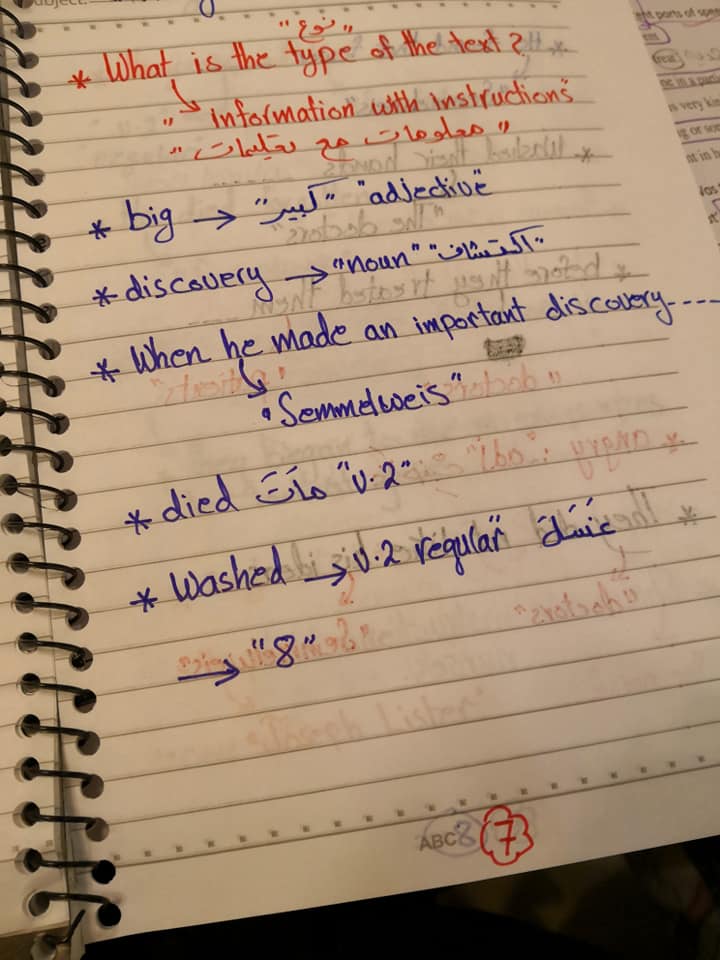 "نوع"
* What is the type of the text ?
" information with instructions"
"معلومات مع تعليمات"
* big → "كبير" "adjective"
* discovery → "noun" "اكتشاف"
* When he made an important discovery----
"Semmelweis"
* died مَاتَ "v.2"
* Washed → v.2 regular" غَسَلَ
→ "8"
ABC 8 7